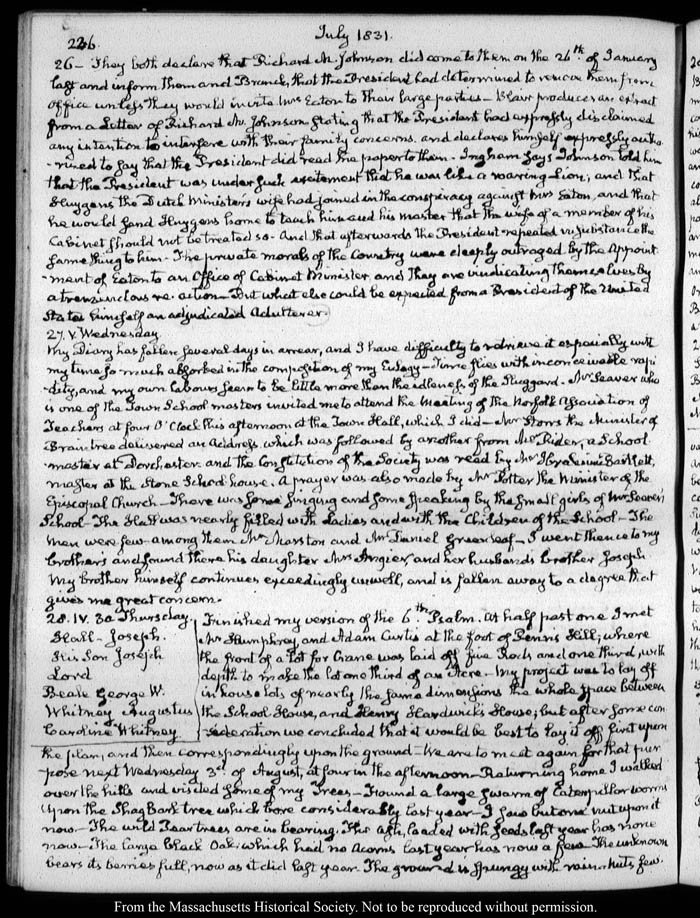 226.
July 1831.
26 — They both declare that Richard M. Johnson did come to them on the 26th. of January
last and inform them and Branch, that the President had determined to remove them from
office unless they would invite Mrs Eaton to their large parties — Blair produces an extract
from a Letter of Richard M. Johnson stating that the President had expressly disclaimed
any intention to interfere with their family concerns. and declares himself expressly autho
-rized to say that the President did read the paper to them — Ingham says Johnson told him
that the President was under such excitement that he was like a roaring Lion; and that
Huygens the Dutch Ministers wife had joined in the conspiracy against Mrs Eaton, and that
he would send Huygens home to teach him and his master that the wife of a member of his
Cabinet should not be treated so. And that afterwards the President repeated in substance the
same thing to him — The private morals of the Country were deeply outraged by the Appoint
-ment of Eaton to an Office of Cabinet Minister, and they are vindicating themselves by
a tremendous re-action — But what else could be expected from a President of the United
States himself an adjudicated Adulterer.
27. V. Wednesday
My Diary has fallen several days in arrear, and I have difficulty to retrieve it especially with
my time so much absorbed in the composition of my Eulogy — Time flies with inconceivable rapi
-dity, and my own labours seem to be little more than the idleness of the Sluggard — Mr Seaver who
is one of the Town School masters invited me to attend the Meeting of the Norfolk Association of
Teachers at four O'Clock this afternoon at the Town Hall, which I did — Mr Storrs the Minister of
Braintree delivered an Address, which was followed by another from Mr Rider, a School
master at Dorchester. and the Constitution of the Society was read by Mr Ibrahim Bartlett,
master at the Stone School house. A prayer was also made by Mr Potter the Minister of the
Episcopal Church — There was some singing and some speaking by the small girls of Mr Seaver's
School — The Hall was nearly filled with Ladies and with the Children of the School — The
men were few — among them Mr Marston and Mr Daniel Greenleaf — I went thence to my
brother's and found there his daughter Mrs Angier, and her husbands brother Joseph
My brother himself continues exceedingly unwell, and is fallen away to a degree that
gives me great concern.
28. IV. 30. Thursday.
Hall — Joseph.
His Son Joseph
Lord
Beale George W.
Whitney Augustus
Caroline Whitney
Finished my version of the 6th. Psalm. At half past one I met
Mr Humphrey, and Adam Curtis at the foot of Penns Hill, where
the front of a lot for Crane was laid off five Rods and one third, with
depth to make the lot one third of an Acre — My project was to lay off
in house lots of nearly the same dimensions the whole space between
the School House, and Henry Hardwick's House; but after some con
-sideration we concluded that it would be best to lay it off first upon
the plan, and then correspondingly upon the ground — We are to meet again for that pur
pose next Wednesday 3d. of August, at four in the afternoon — Returning home I walked
over the hills and visited some of my Trees — Found a large swarm of Caterpillar worms
upon the Shag Bark tree which bore considerably last year — I saw but one nut upon it
now — The wild Pear trees are in bearing. The Ash, loaded with seeds last year has none
now — The large black Oak, which had no Acorns last year has now a few. The unknown
bears its berries full, now as it did last year. The ground is spungy with rain. Nuts few.
From the Massachusetts Historical Society. Not to be reproduced without permission.